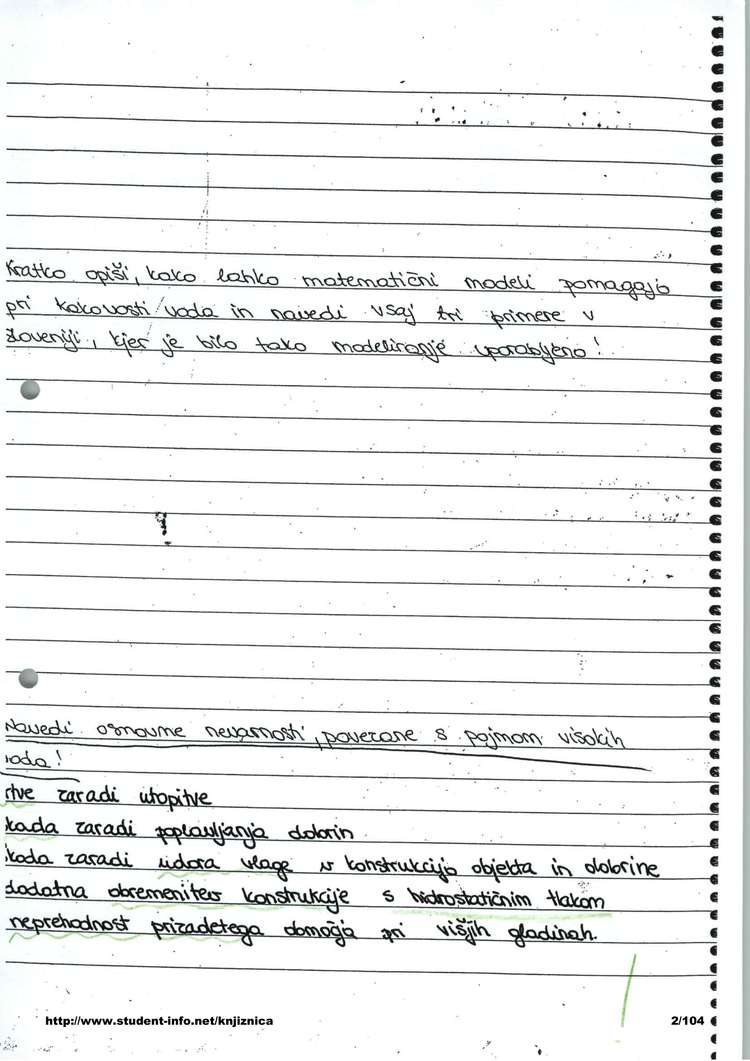 Kratko opiši, kako lahko matematični modeli pomagajo
pri kakovosti voda in navedi vsaj tri primere v
Sloveniji, kjer je bilo tako modeliranje uporabljeno!
?
Navedi osnovne nevarnosti, povezane s pojmom visokih
voda!
rtve zaradi utopitve
koda zaradi poplavljanja dobrin
koda zaradi vdora vlage v konstrukcijo objekta in dobrine
dodatna obremenitev konstrukcije s hidrostatičnim tlakom
neprehodnost prizadetega območja pri višjih gladinah.
http://www.student-info.net/knjiznica 2/104